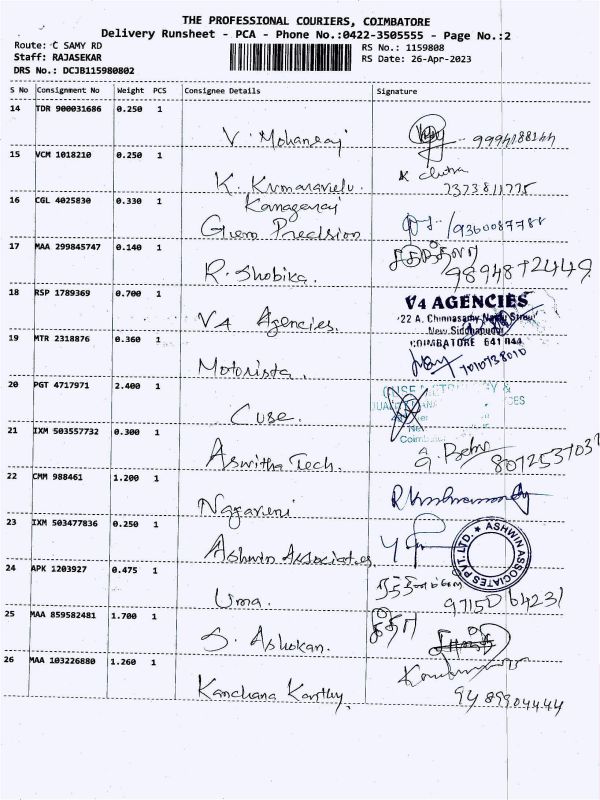 THE PROFESSIONAL COURIERS, COIMBATORE
Delivery Runsheet - PCA - Phone No.:0422-3505555 - Page No.:2
Route: C SAMY RD
RS No.: 1159808
Staff: RAJASEKAR
RS Date: 26-Apr-2023
DRS No.: DCJB115980802
S No Consignment No Weight PCS Consignee Details Signature
14 TDR 900031686 0.250 1
V. Mohanraj 9994188144
15 VCM 1018210 0.250 1
K. Kumaravelu. K Chitra
7373811775
16 CGL 4025830 0.330 1
Kanagaraj
Guem Precision 9360087788
17 MAA 299845747 0.140 1
R. Shobika. 9894872449
18 RSP 1789369 0.700 1
V4 AGENCIES
22 A, Chinnasamy Naidu Street
New Siddhapudur
V4 Agencies. COIMBATORE 641 044
19 MTR 2318876 0.360 1
Motorista. 7010738010
20 PGT 4717971 2.400 1
Cuse.
21 IXM 503557732 0.300 1
Aswitha Tech.
22 CMM 988461 1.200 1
Nagaveni
23 IXM 503477836 0.250 1
Ashwin Associates
ASHWIN ASSOCIATES PVT. LTD.
24 APK 1203927 0.475 1
Uma. 97150 64231
25 MAA 859582481 1.700 1
S. Ashokan.
26 MAA 103226880 1.260 1
Kanchana Karthy. 9489904444